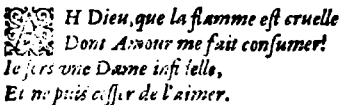 AH Dieu, que la flamme eſt cruelle
Dont Amour me fait conſumer!
Ie ſers vne Dame infidelle,
Et ne puis ceſſer de l'aimer.